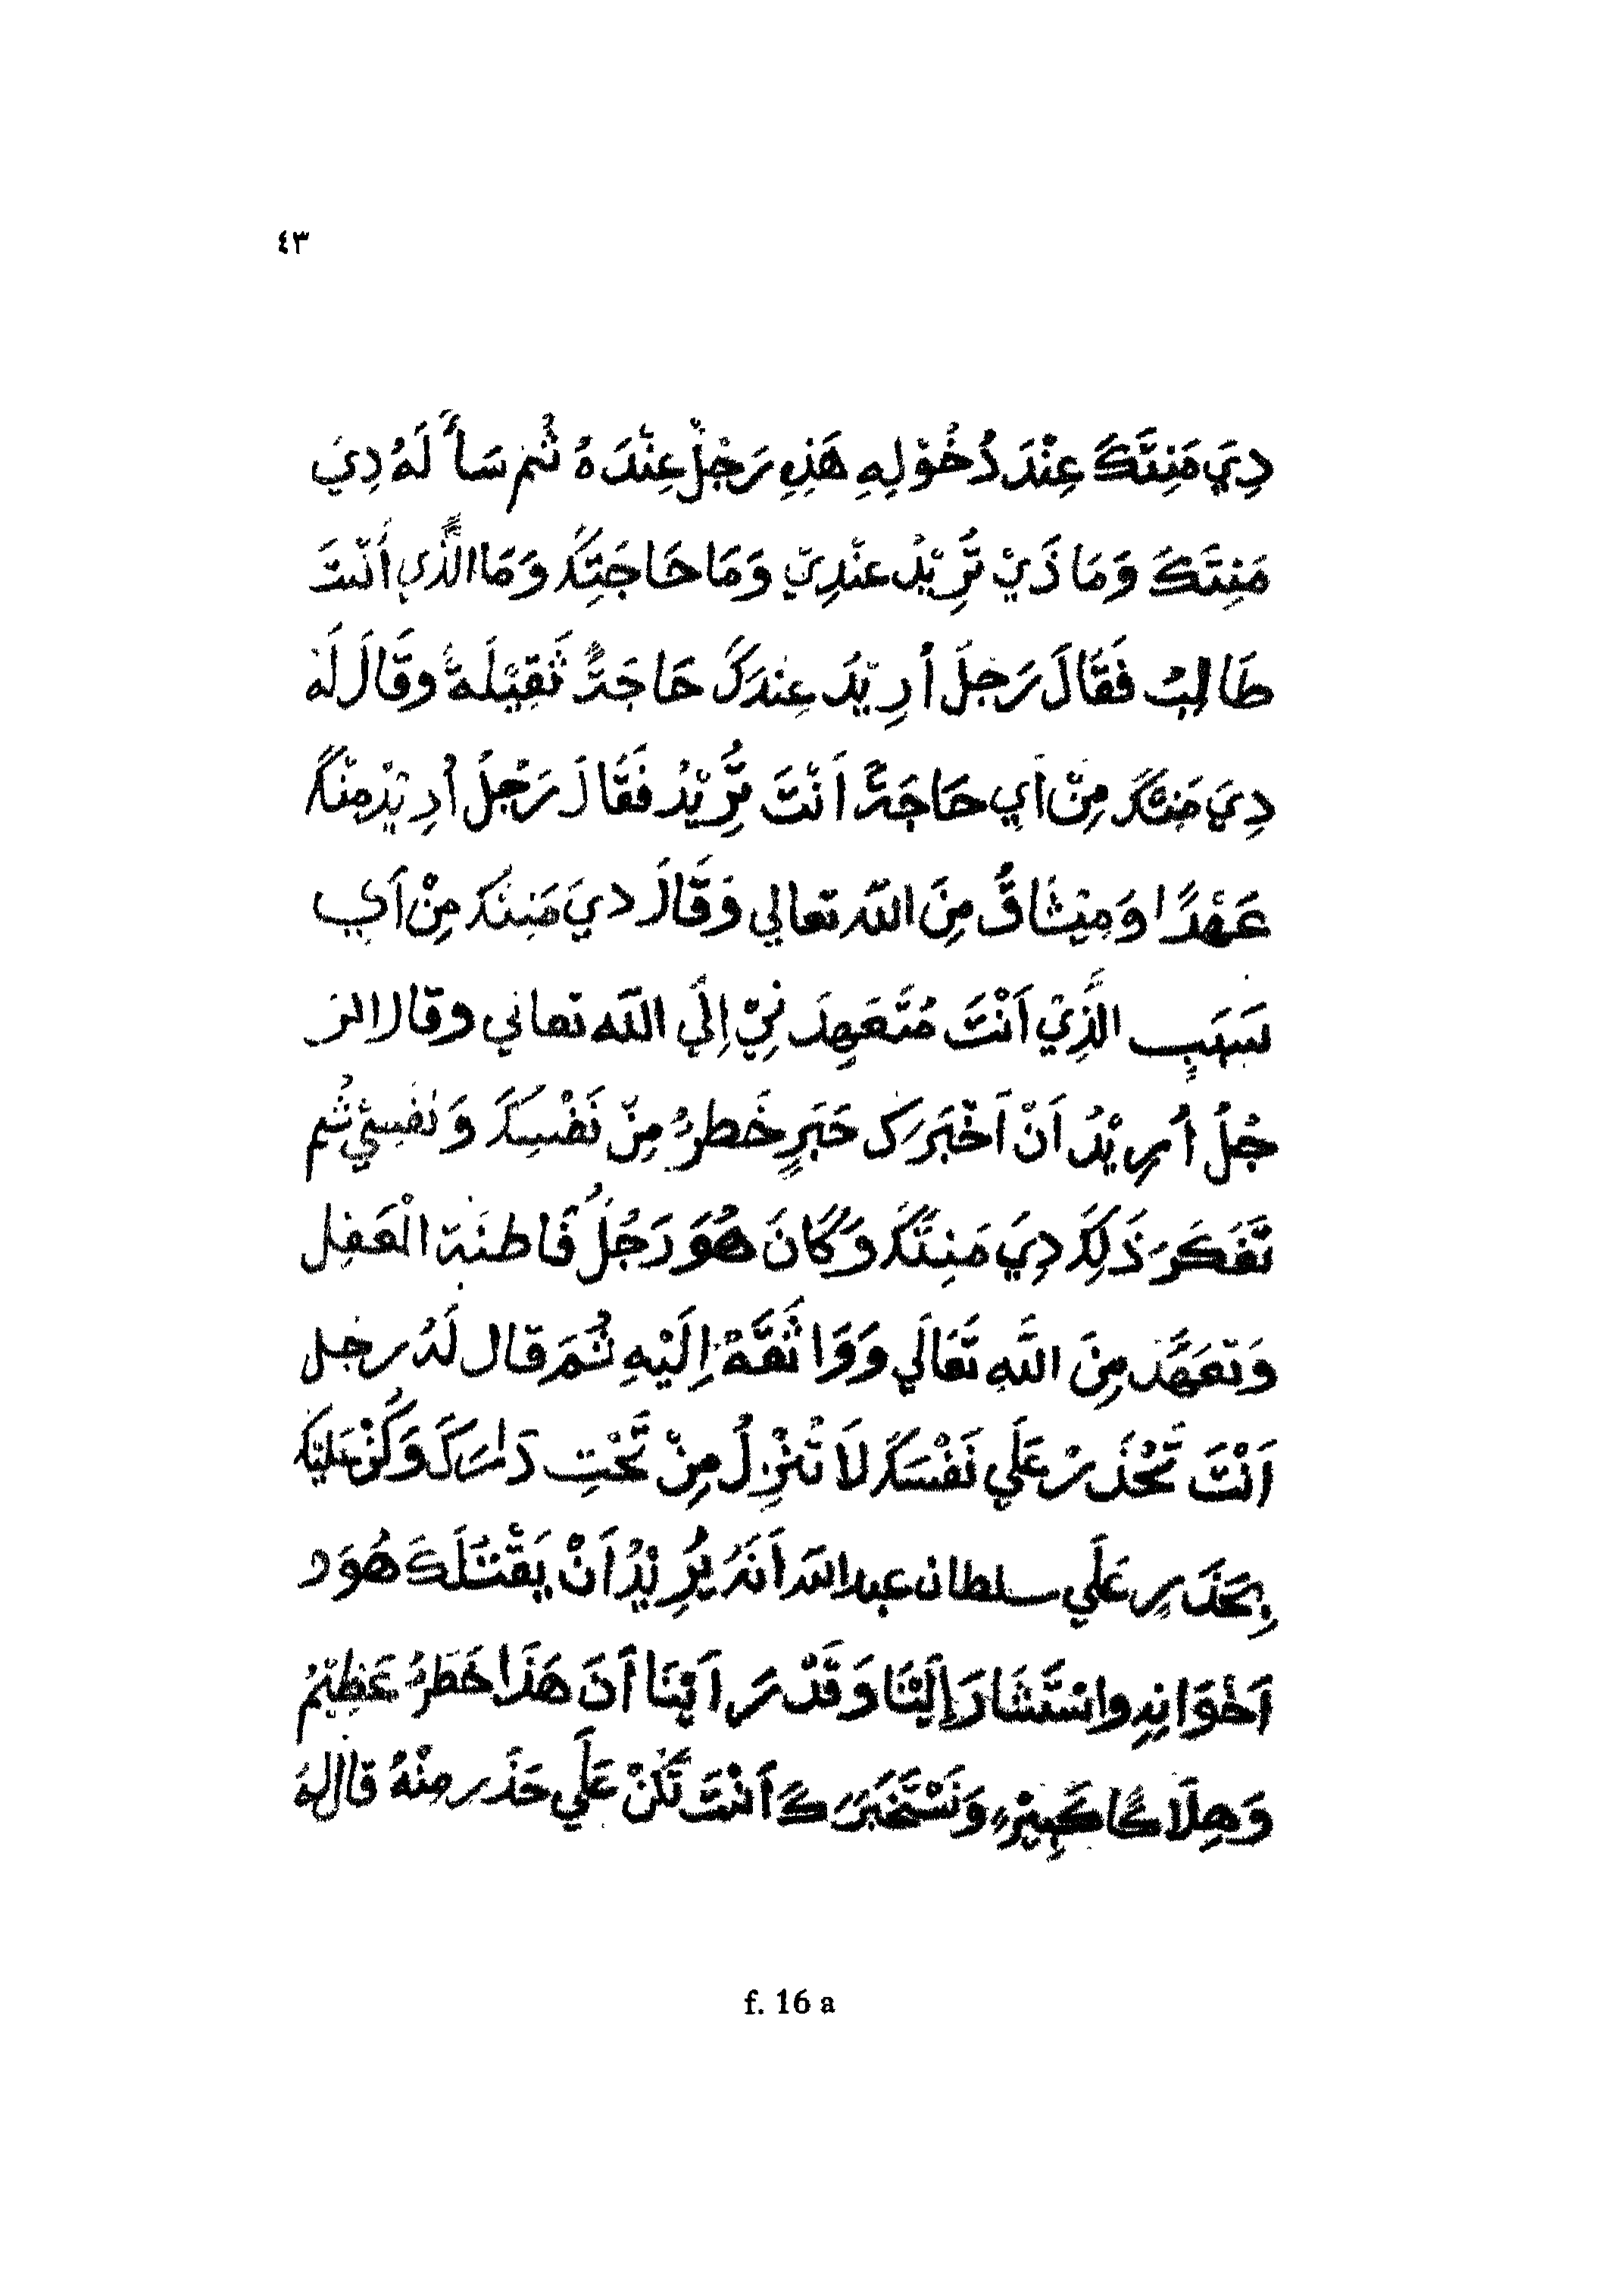 ٤٣
دِيَ مَنِتَّكَ عِنْدَ دُخُوْلِهِ هَذِهِ رَجْلٌ عِنْدَهُ ثُمَ سَأَ لَهُ دِيَ
مَنِتَكَ وَمَا ذَيْ تَّرِيْدُ عِنْدِيّ وَمَا حَاجَتِكَ وَمَا الَّذِي أَنْتَ
طَالِبُ فَقَالَ رَجلَ أرِيْدَ عِندَكَ حَاجَةً ثَقِيْلَةً وقَالَ لَهُ
دِيَ مَنتكَ مِنْ آيِ حَاجَةً اَنْتَ تُّرِيْدُ فَقَالَ رَجْلَ أُرِيْدْ مِنْكَ
عَهْدًا وَمِيْثَاقٌ مِنَ اللّه تعالي وَقَالَ ديَ مَنِتكَ مِنْ اَيِ
سَبَبٍ الَّذِيْ اَنْتَ مُتَّعَهِدَ نِيْ إِلَي اللّه تعالي وقال الر
جُلُ أُرِيْدُ اَنْ اَخْبَرَكَ خَبَرٍ خَطرُ مِنْ نَفْسِكَ وَنَفْسِيْ ثُم
تَّفَكَرَ ذَلِكَ دِيَ مَنِتَّكَ وَكَانَ هُوَ رَجُلُ فَاطنَة الْعَقِل
وَتعَهَّدَ مِنَ اللَّهِ تَّعَالَي وَوَاثَقَهْ إِلَيْهِ ثُمَ قال لَهُ رجل
اَنْتَ تَّحْذَرْ عَلَي نَفْسَكَ لاَ تُنْزِلُ مِنْ تَّحْتِ دَارَكَ وَكُنْ عَلَيْكَ
بِحَذَرِ عَلَي سلطان عبد اللّه اَنَهُ يُرِيْدُ اَنْ يَقْتُلَكَ هُوَ و
اَخْوَانِهِ واسْتَشَارَ إِلَيْنَا وَقَدْ رَاَيْنَا أَنَ هَذَا خَطرُ عَظِيْمُ
وَهِلَاكًا كَبِيْرٍ وَنَسْتَخْبَرَكَ اَنْتَ تَكُنْ عَلَي حَذَر مِنْهُ قال لهُ
f. 16 a